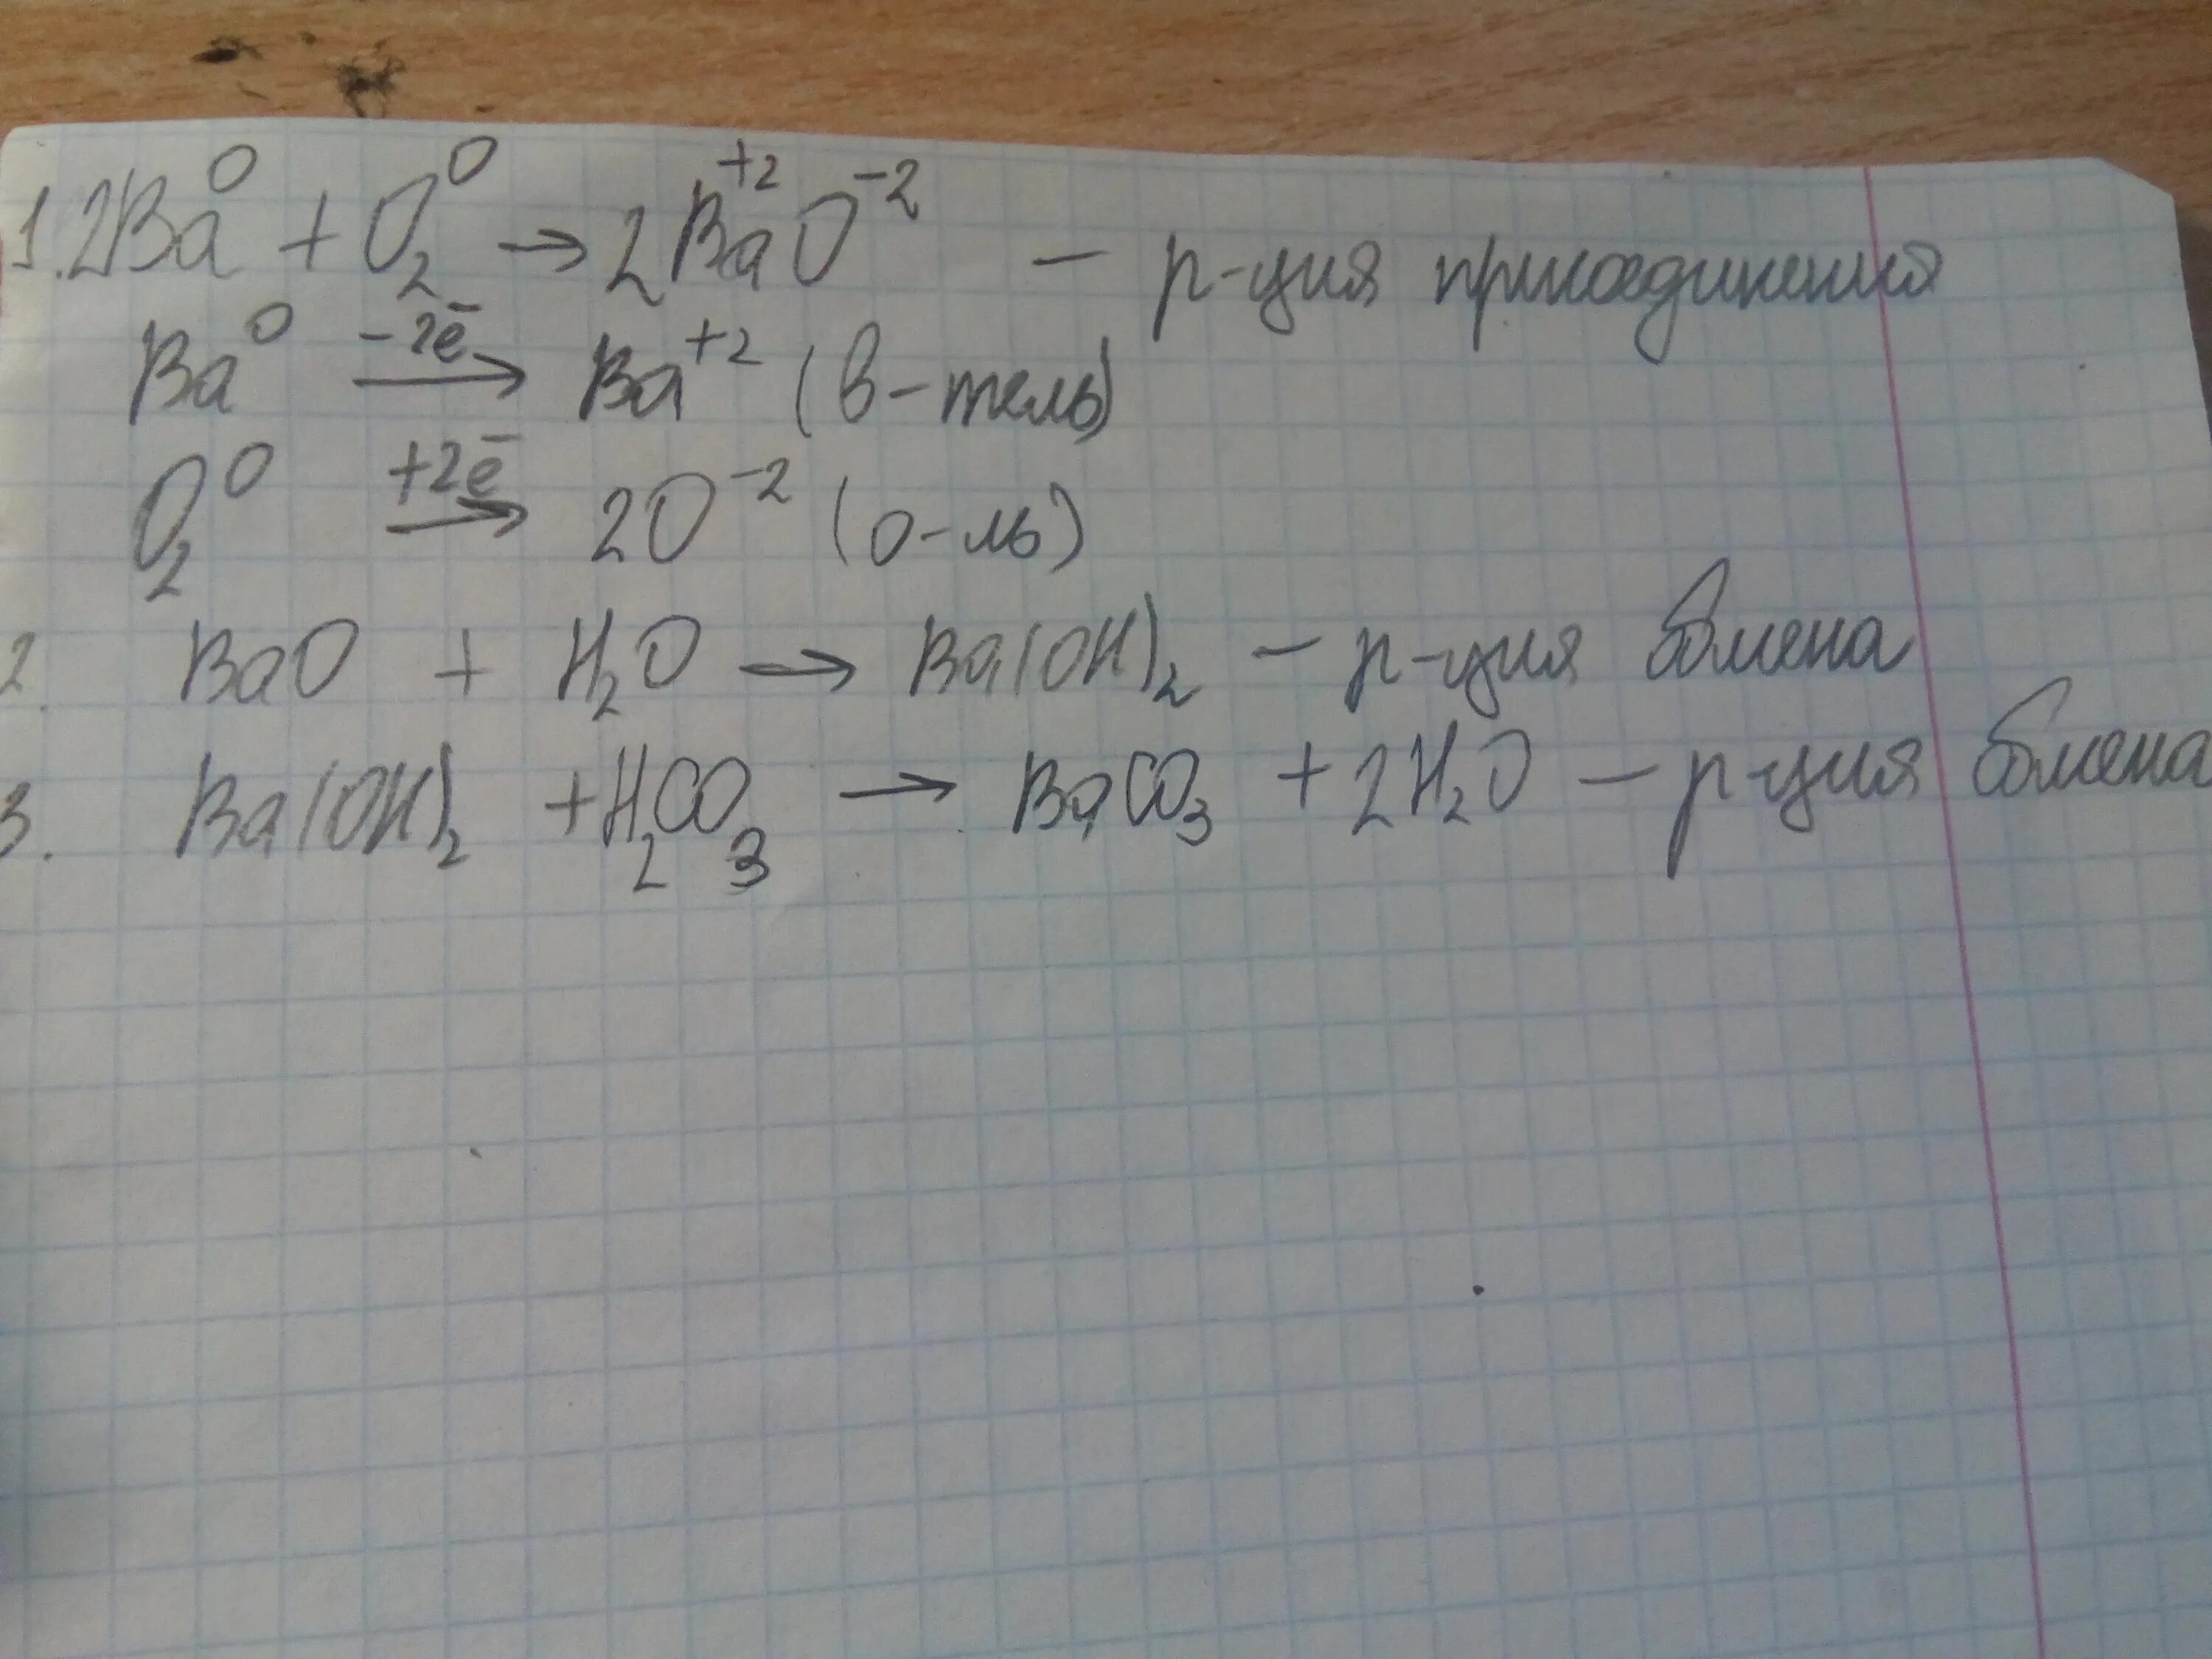 1. 2Ba⁰ + O₂⁰ → 2Ba⁺²O⁻² – р-ция присоединения
Ba⁰ –2ē→ Ba⁺² (в-тель)
O₂⁰ +2ē→ 2O⁻² (о-ль)
2. BaO + H₂O → Ba(OH)₂ – р-ция обмена
3. Ba(OH)₂ + H₂CO₃ → BaCO₃ + 2H₂O – р-ция обмена